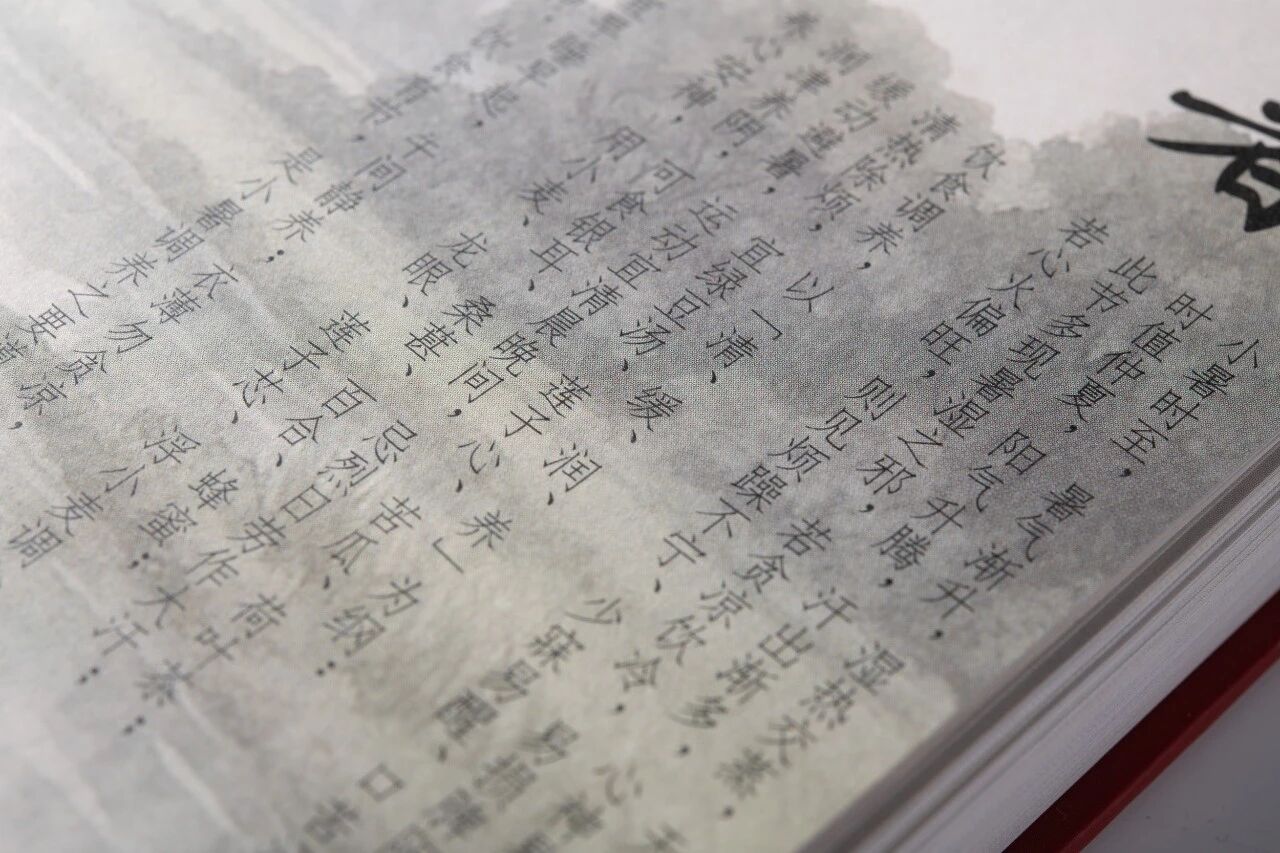 小暑时至，暑气渐升，湿热交蒸，
时值仲夏，阳气升腾，汗出渐多，心神
此节多现暑湿之邪，若贪凉饮冷，易损脾
若心火偏旺，则见烦躁不宁、少寐易醒、口苦
饮食调养，以「清、缓、润、养」为纲：
清热除烦，宜绿豆汤、莲子心、苦瓜、荷叶茶；
缓动暑，运动宜清晨晚间，忌烈日劳作大汗；
润津养阴，可食银耳、桑葚、百合、蜂蜜；
养心安神，用小麦、龙眼、莲子志、浮小麦调
睡早起，午间静养；衣薄勿贪凉，
饮食有节，是小暑调养之要道